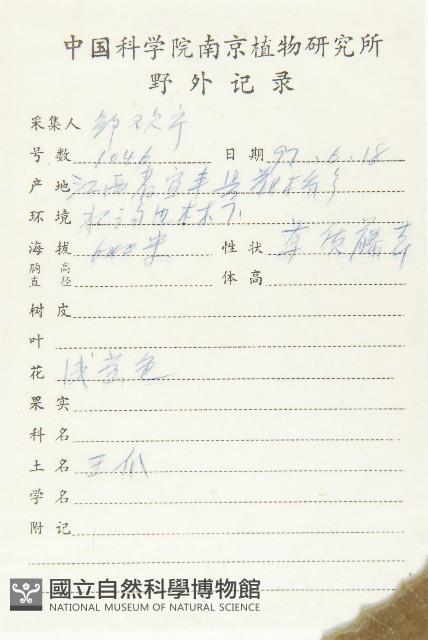 中国科学院南京植物研究所
野外记录
采集人
号数 1046 日期 97.6.18
产地 江西省宜丰县
环境 林下
海拔 600米 性状 草质藤本
胸高直径 体高
树皮
叶
花 浅黄色
果实
科名
土名 王瓜
学名
附记
國立自然科學博物館
NATIONAL MUSEUM OF NATURAL SCIENCE